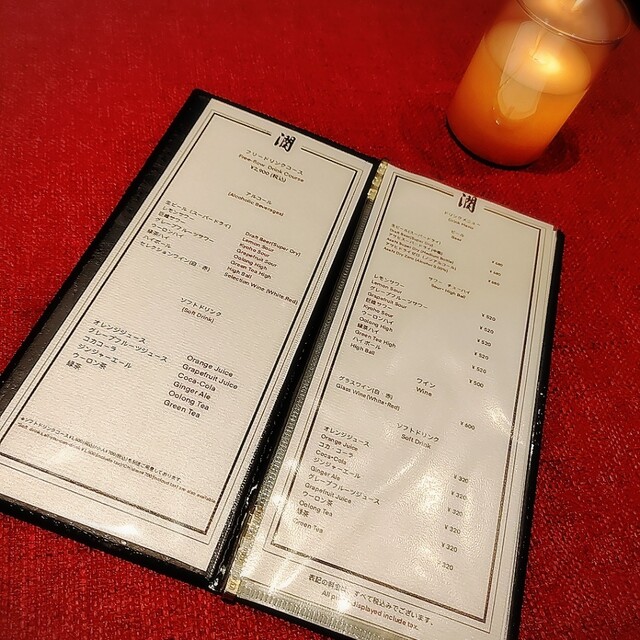 潤
フリードリンクコース
Free-flow Drink Course
¥2,900(税込)
アルコール
(Alcoholic Beverages)
生ビール(スーパードライ) Draft Beer(Super Dry)
レモンサワー Lemon Sour
巨峰サワー Kyoho Sour
グレープフルーツサワー Grapefruit Sour
ウーロンハイ Oolong High
緑茶ハイ Green Tea High
ハイボール High Ball
セレクションワイン(白・赤) Selection Wine (White・Red)
ソフトドリンク
(Soft Drink)
オレンジジュース Orange Juice
グレープフルーツジュース Grapefruit Juice
コカコーラ Coca-Cola
ジンジャーエール Ginger Ale
ウーロン茶 Oolong Tea
緑茶 Green Tea
潤
ドリンクメニュー
Drink Menu
ビール
Beer
生ビール(スーパードライ)
サワー・酎ハイ
Sour・High Ball
レモンサワー ¥520
Lemon Sour
グレープフルーツサワー ¥520
Grapefruit Sour
巨峰サワー ¥520
Kyoho Sour
ウーロンハイ ¥520
Oolong High
緑茶ハイ ¥520
Green Tea High
ハイボール ¥500
High Ball
ワイン
Wine
グラスワイン(白・赤) ¥600
Glass Wine(White・Red)
ソフトドリンク
Soft Drink
オレンジジュース ¥320
Orange Juice
コカ・コーラ ¥320
Coca-Cola
ジンジャーエール ¥320
Ginger Ale
グレープフルーツジュース ¥320
Grapefruit Juice
ウーロン茶 ¥320
Oolong Tea
緑茶 ¥320
Green Tea
表記の料金は、すべて税込みでございます。
All prices displayed include tax.